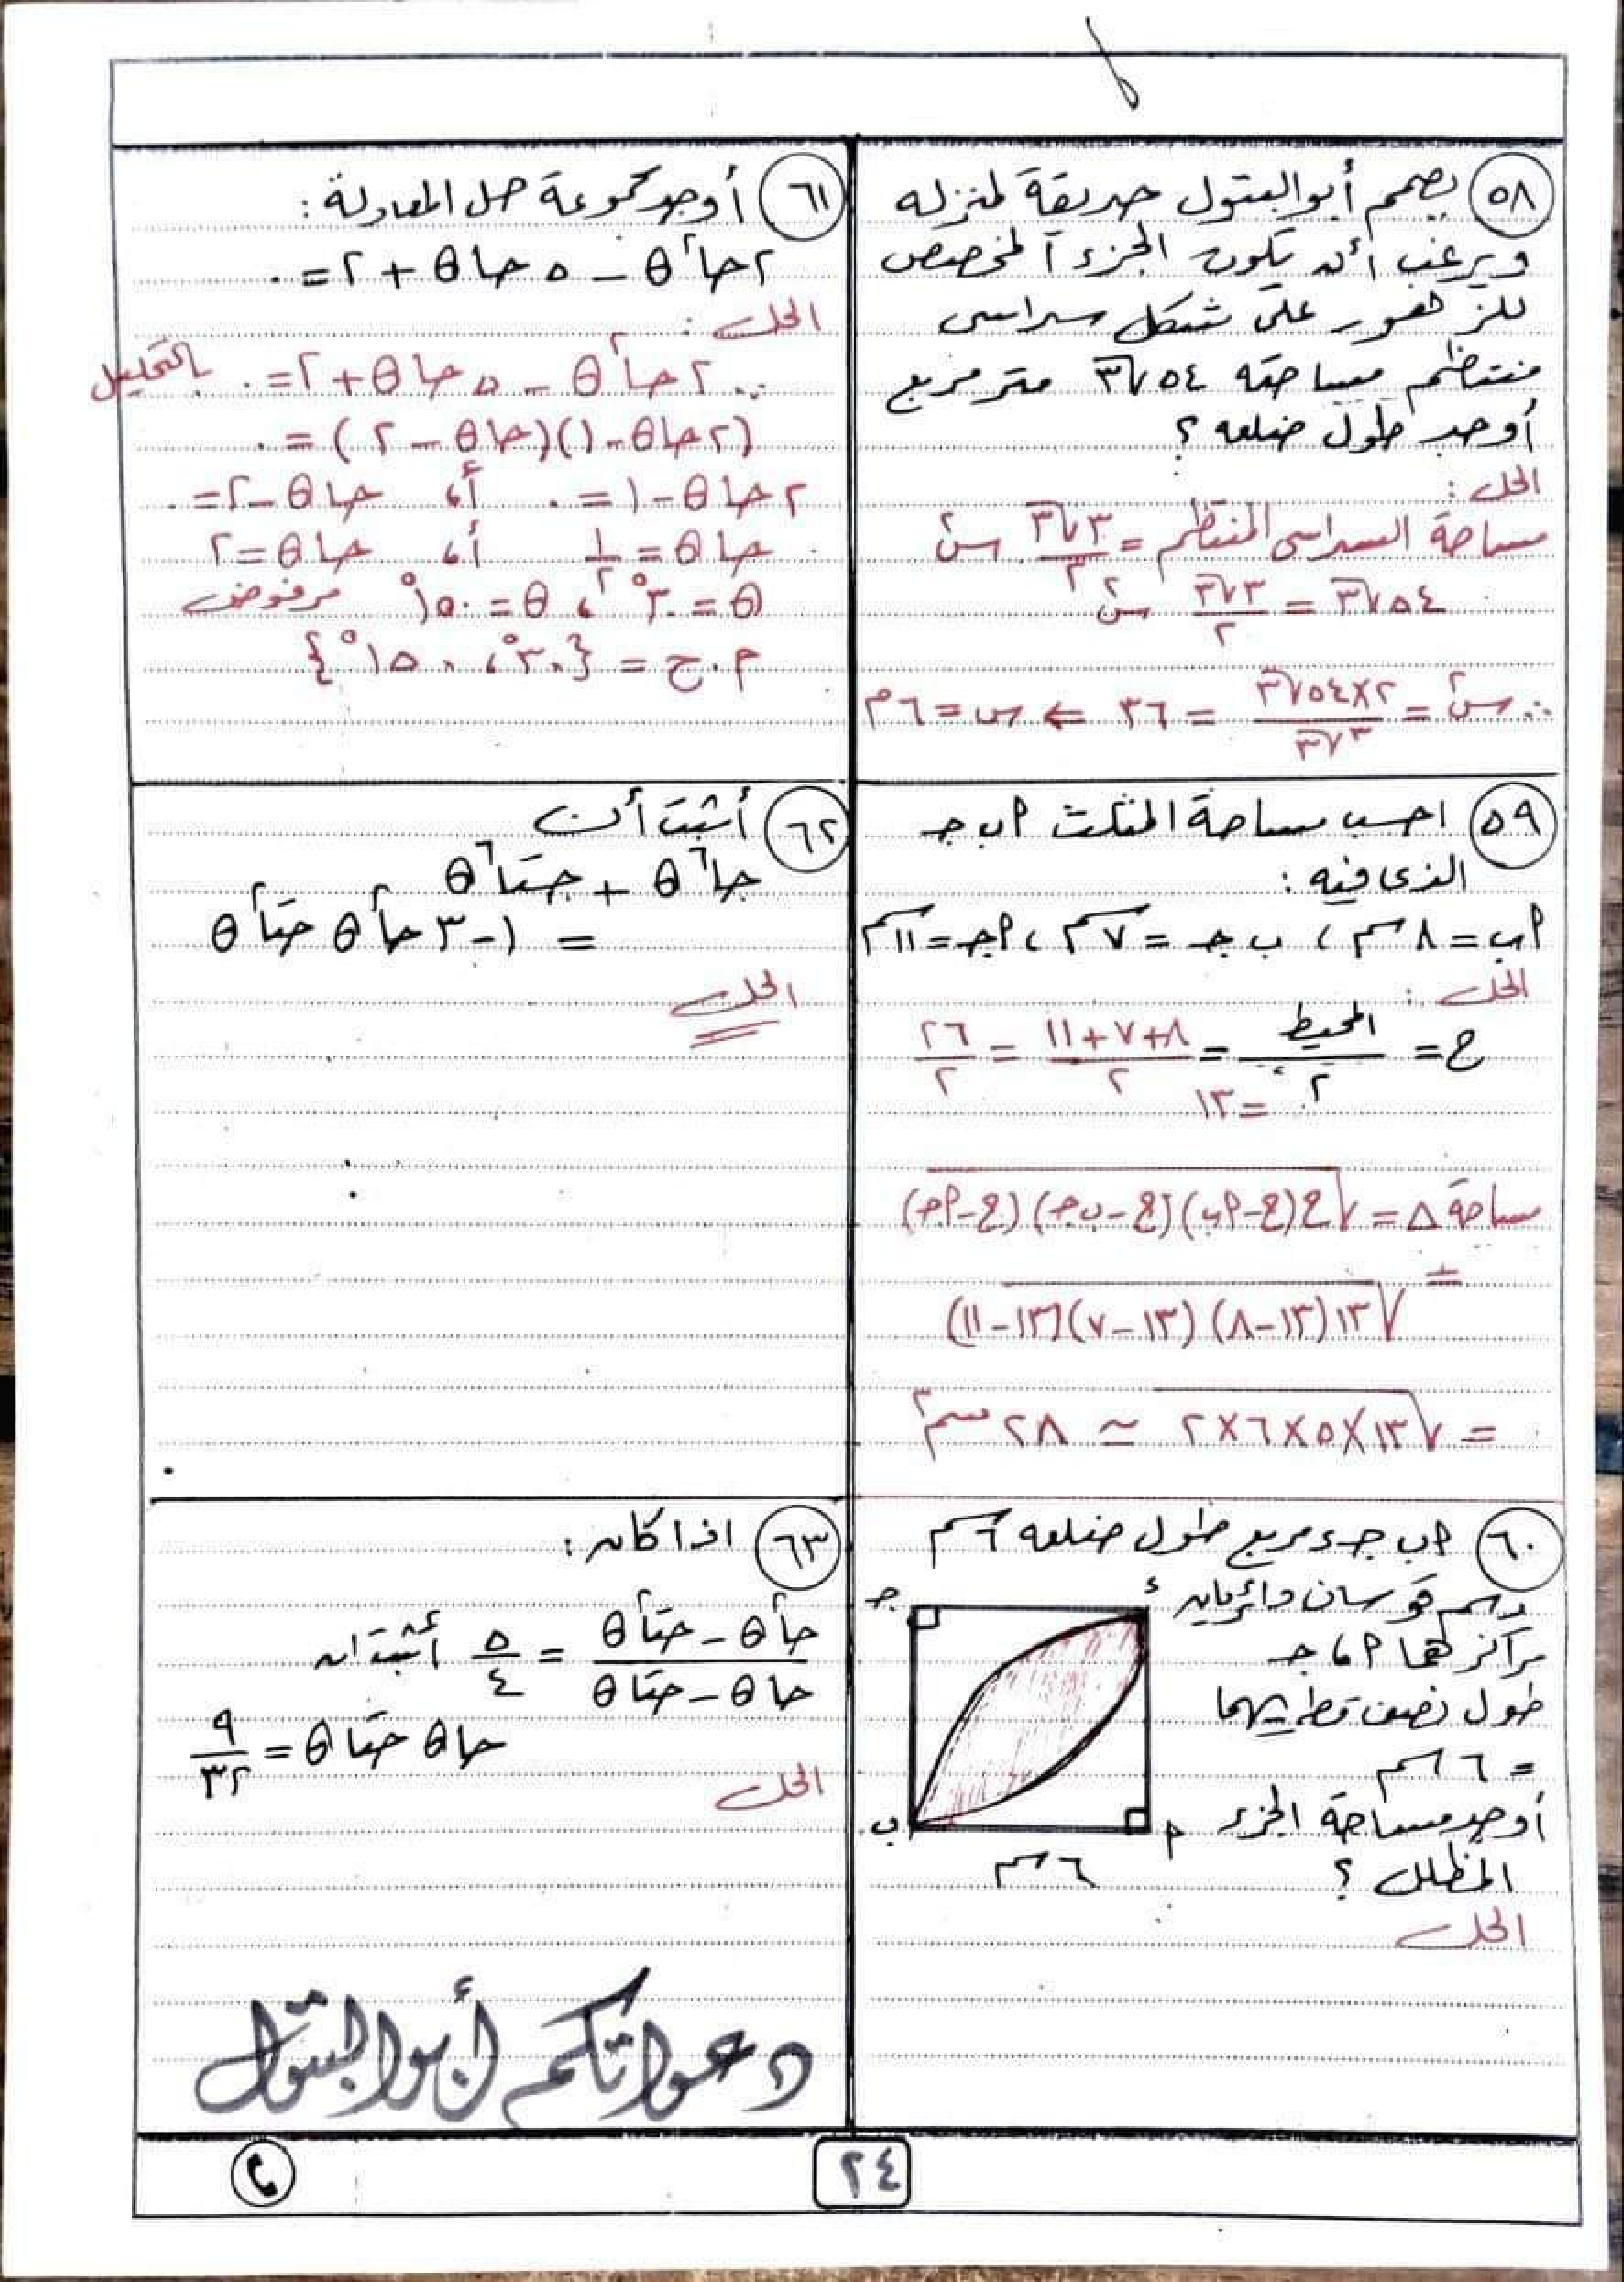 ٥٨ يصمم أبو البتول حديقة لمنزله
ويرغب أن يكون الجزء المخصص
للزهور على شكل سداسى
منتظم مساحته ٥٤√٣ متر مربع
أوجد طول ضلعه ؟
الحل :
مساحة السداسى المنتظم = ٣√٣/٢ س٢
٥٤√٣ = ٣√٣/٢ س٢
∴ س٢ = ٢×٥٤√٣/٣√٣ = ٣٦ ⇐ س = ٦ م
٥٩ احسب مساحة المثلث ا ب جـ
الذى فيه :
ا ب = ٨ سم ، ب جـ = ٧ سم ، ا جـ = ١١ سم
الحل :
ح = المحيط/٢ = ٨+٧+١١/٢ = ٢٦/٢
= ١٣
مساحة Δ = √ح(ح-ا ب)(ح-ب جـ)(ح-ا جـ)
=
√١٣(١٣-٨)(١٣-٧)(١٣-١١)
= √١٣×٥×٦×٢ ≃ ٢٨ سم٢
٦٠ ا ب جـ ء مربع طول ضلعه ٦ سم
رسم قوسان دائريان
مراكزهما ا ، جـ
طول نصف قطريهما
= ٦ سم
أوجد مساحة الجزء
المظلل ؟
جـ
ء
ب
ا
٦ سم
الحل
٦١ أوجد مجموعة حل المعادلة :
٢حا٢θ - ٥ حاθ + ٢ = ٠
الحل :
∵ ٢حا٢θ - ٥ حاθ + ٢ = ٠ بالتحليل
(٢حاθ - ١)(حاθ - ٢) = ٠
٢حاθ - ١ = ٠ أ، حاθ - ٢ = ٠
حاθ = ١/٢ أ، حاθ = ٢
θ = ٣٠° ، θ = ١٥٠° مرفوض
م.ح = {٣٠° ، ١٥٠°}
٦٢ أثبت أن
حا٦θ + حتا٦θ
= ١ - ٣ حا٢θ حتا٢θ
الحل
٦٣ اذا كان :
حا٢θ - حتا٢θ/حاθ - حتاθ = ٥/٤ أثبت أن
حاθ حتاθ = ٩/٣٢
الحل
دعواتكم أبو البتول
٢٤